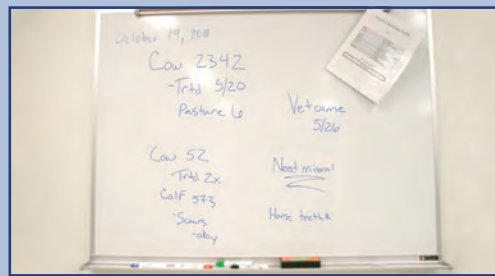 October 19, 2011
Cow 2342
-Trtd 5/20
Pasture 6
Vet came
5/26
Cow 52
-Trtd 2x
Calf 573
-Scours
-okay
Need mineral
Horse teeth